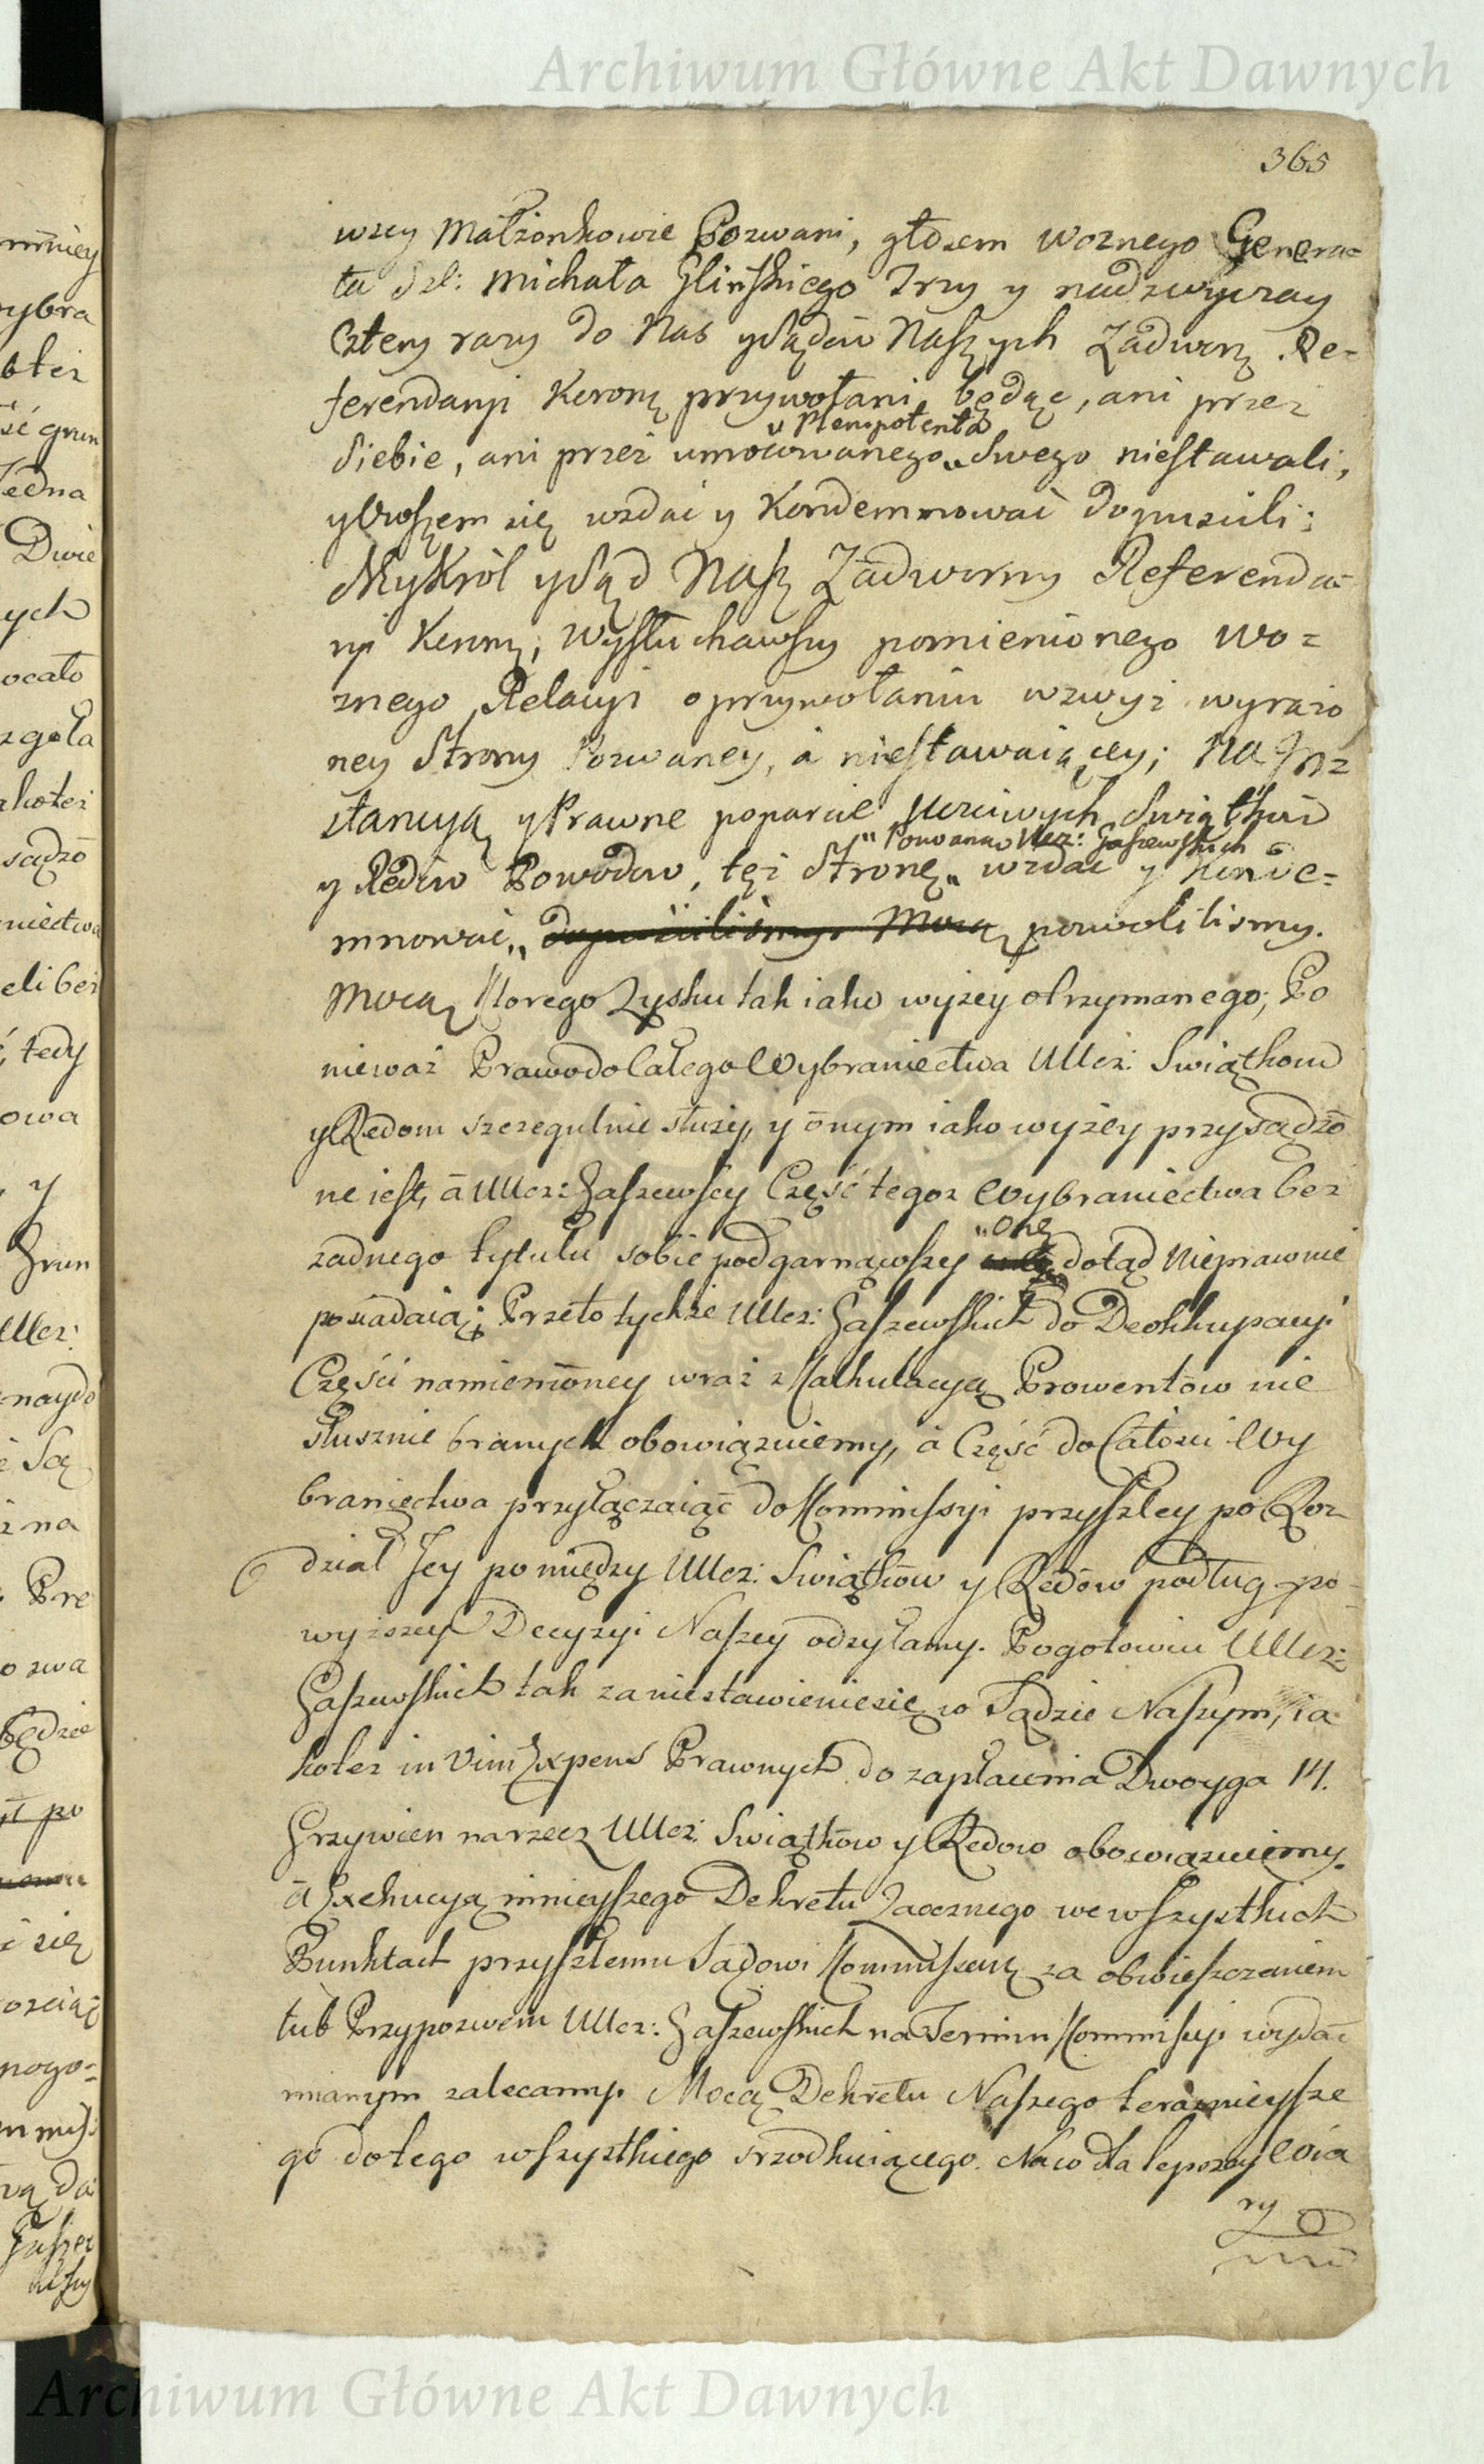 Archiwum Główne Akt Dawnych
365
wscy Małżonkowie Pozwani, głosem woznego Genera=
ła Szl: Michała Glinskiego Trzy y nadzwyczay
Cztery razy do Nas y Sądów Naszych Zadwor: Re=
ferendaryi Koron: przywołani będąc, ani przez
Siebie, ani przez umocowanego „ Plenipotenta „ Swego niestawali,
y owszem się wzdać y Kondemnować dopuścili:
My Król y Sąd Nasz Zadworny Referenda=
ryi Koron:, wysłuchawszy pomienionego Wo=
znego Relacyi o przywołaniu wzwyż wyrażo
ney Strony Pozwaney, á niestawaiącey; Na In=
stancyą y Prawne poparcie Uczciwych Swiątków
y Redów Powodów, też Stronę „ Pozwaną Ucz: Gaszewskich „ wzdać y Konde=
mnować „ dopuścilismy. Mocą pozwolilismy.
Mocą Ktorego Zysku tak iako wyżey otrzymanego; Po
nieważ Prawo do Całego Wybraniectwa UUcz: Swiątkom
y Redom szczegulnie służy, y ónym iako wyżey przysądzo
ne iest, á UUcz: Gaszewscy Część tegoż Wybraniectwa bez
żadnego tytułu sobie podgarnąwszy „one dotąd Nieprawnie
posiadaią; Przeto tychże UUcz: Gaszewskich do Deokkupacyi
Części namienioney wraz z Kalkulacyą Prowentów nie
słusznie branych obowiązuiemy, á Część do Całości Wy
braniectwa przyłączaiąc do Kommissyi przyszłey po Roz
dział Jey pomiędzy UUcz: Swiątków y Redów podług po=
wyższey Decyzyi Naszey odsyłamy. Pogotowiu UUcz:
Gaszewskich tak za niestawienie się w Sądzie Naszym, ia
koteż in Vim Expens Prawnych do zapłacenia Dwoyga 14.
Grzywien na rzecz UUcz: Swiątków y Redów obowiązuiemy.
á Exekucyą ninieyszego Dekretu Zaocznego we wszystkich
Punktach przyszłemu Sądowi Kommissar: za obwieszczeniem
lub Przypozwem UUcz: Gaszewskich na Termin Kommissyi wydać
mianym zalecamy. Mocą Dekretu Naszego teraznieysze
go do tego wszystkiego srzodkuiącego. Na co dla lepszey Wia
ry
Archiwum Główne Akt Dawnych